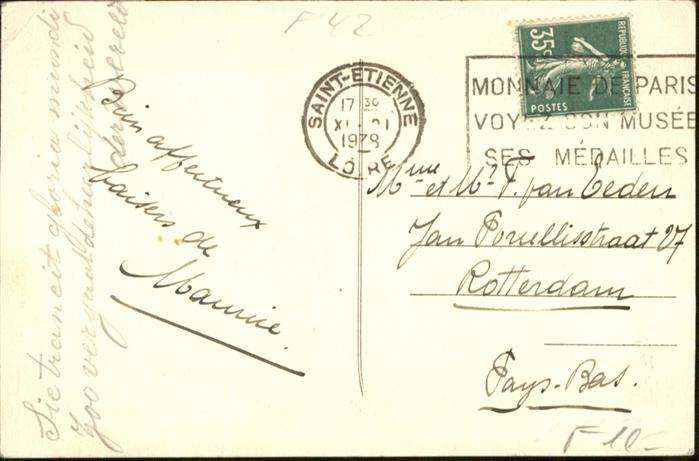 F 42
Sic trancit gloria mundi
Zoo vergaat de heerlijkheid
der wereld
affectueux
baisers de
Maurice.
SAINT-ETIENNE
17 30
1938
LOIRE
35c
REPUBLIQUE FRANÇAISE
POSTES
MONNAIE DE PARIS
VOYEZ SON MUSÉE
SES MÉDAILLES
Mme et Mr. F. van Eeden
Jan Porcellisstraat 27
Rotterdam
Pays-Bas.
F 10-